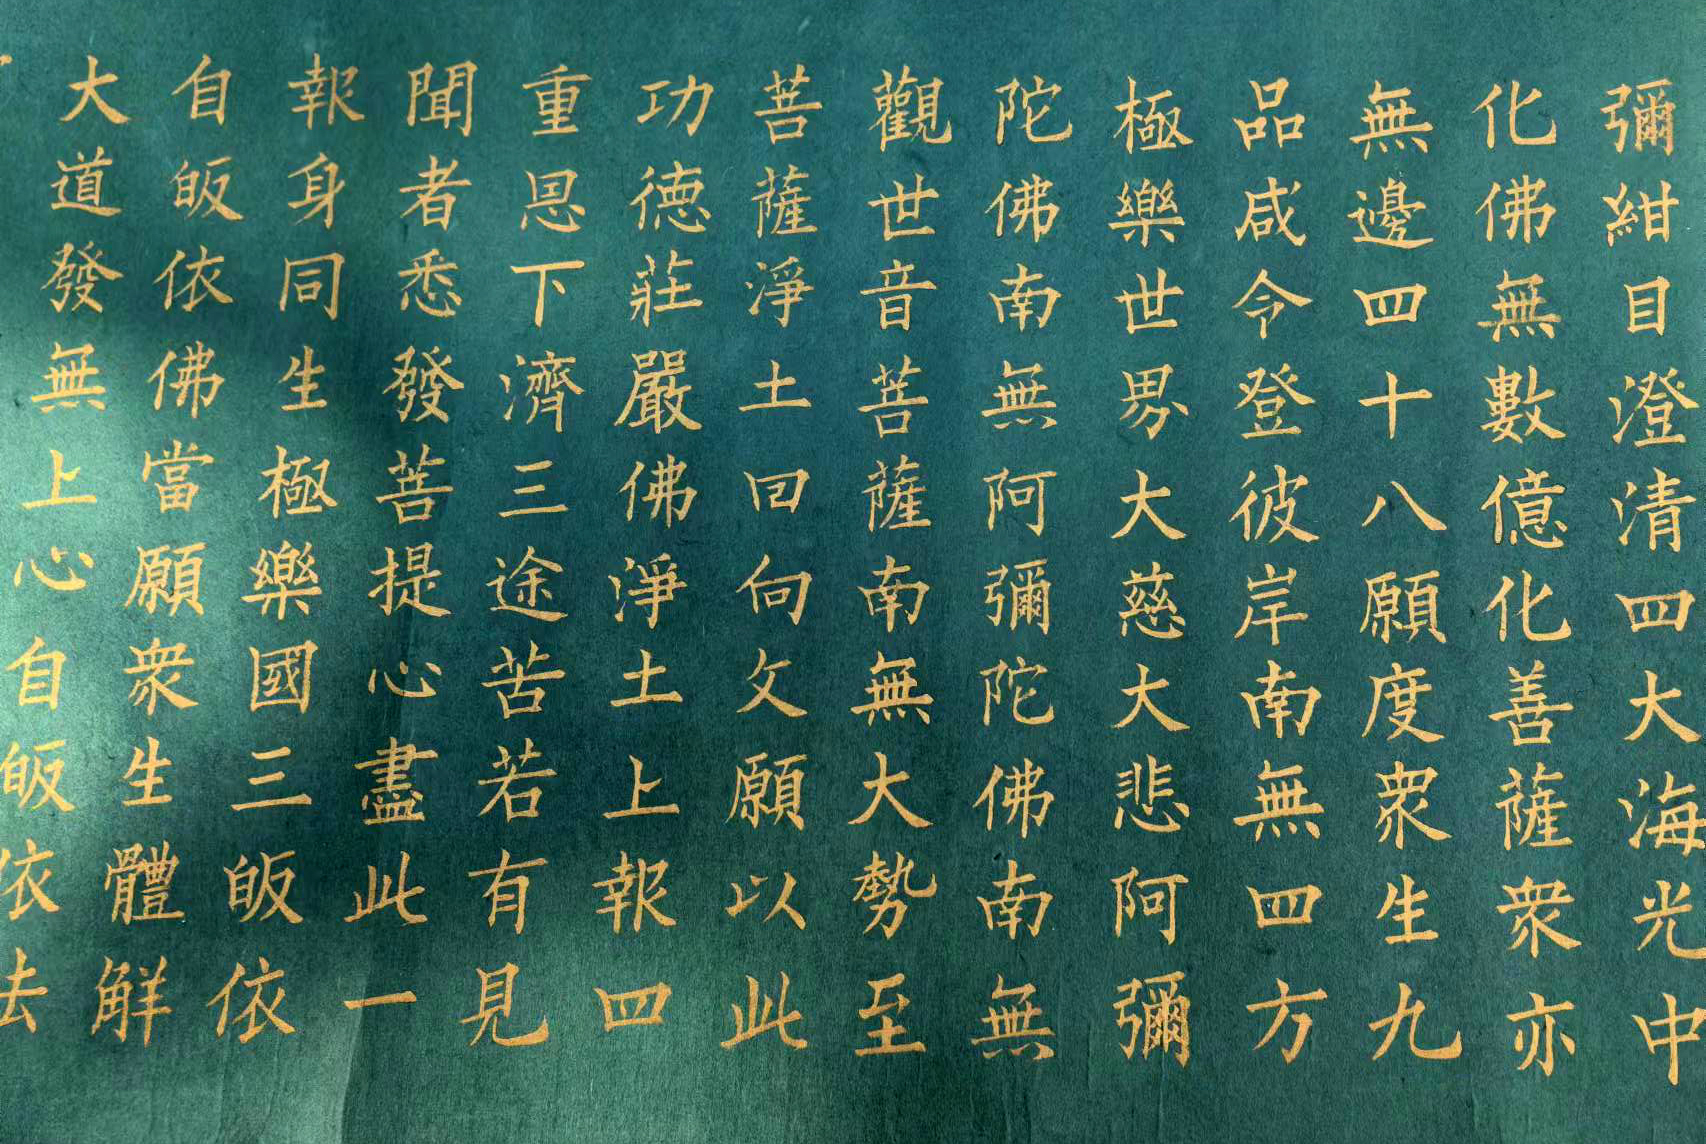 彌紺目澄清四大海光中
化佛無數億化善薩衆亦
無邊四十八願度衆生九
品咸令登彼岸南無四方
極樂世界大慈大悲阿彌
陀佛南無阿彌陀佛南無
觀世音菩薩南無大勢至
菩薩淨土回向文願以此
功德莊嚴佛淨土上報四
重恩下濟三途苦若有見
聞者悉發菩提心盡此一
報身同生極樂國三皈依
自皈依佛當願衆生體解
大道發無上心自皈依法